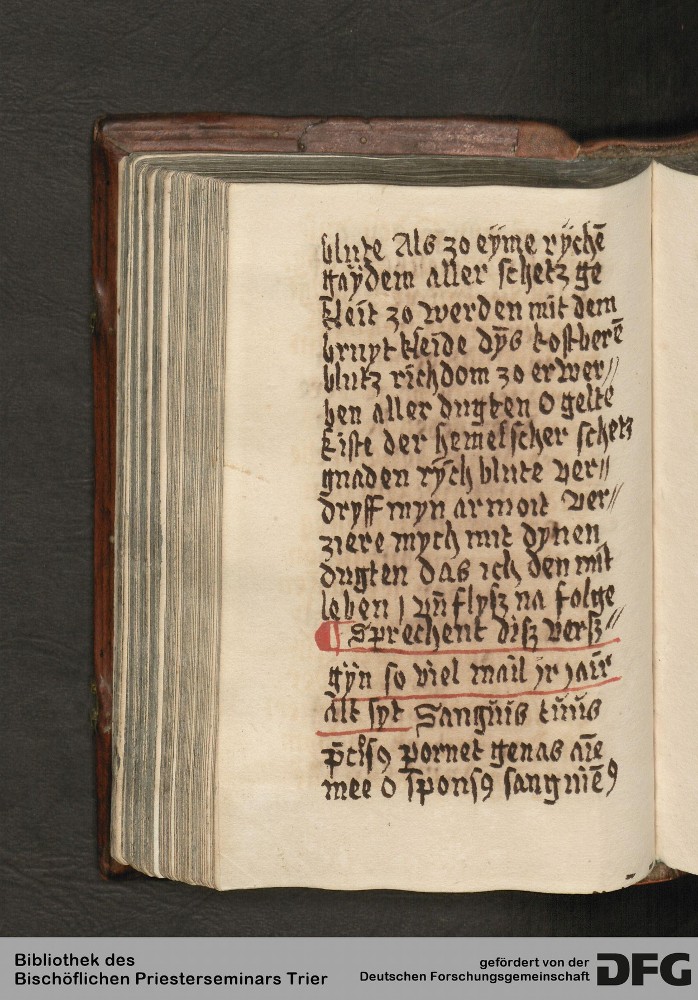 blute Als zo eÿme rÿchē
gaÿdem aller schetz ge
kleit zo werden mit dem
bruyt kleide dÿs kostberē
blutz richdom zo erwer//
ben aller dugten O gelte
kiste der hemelscher schetz
gnaden rÿch blute ver//
dryff myn armoit ver//
ziere mych mit dynen
dugten das ich den mit
leben / vn̄ flysz na folge
¶ Sprechent disz versz//
gÿn so viel mail jr jair
alt syt Sanguis tuus
p̄cīsꝯ pornet genas aīe
mee O sponsꝯ sanguinēꝯ
Bibliothek des
Bischöflichen Priesterseminars Trier
gefördert von der
Deutschen Forschungsgemeinschaft
DFG